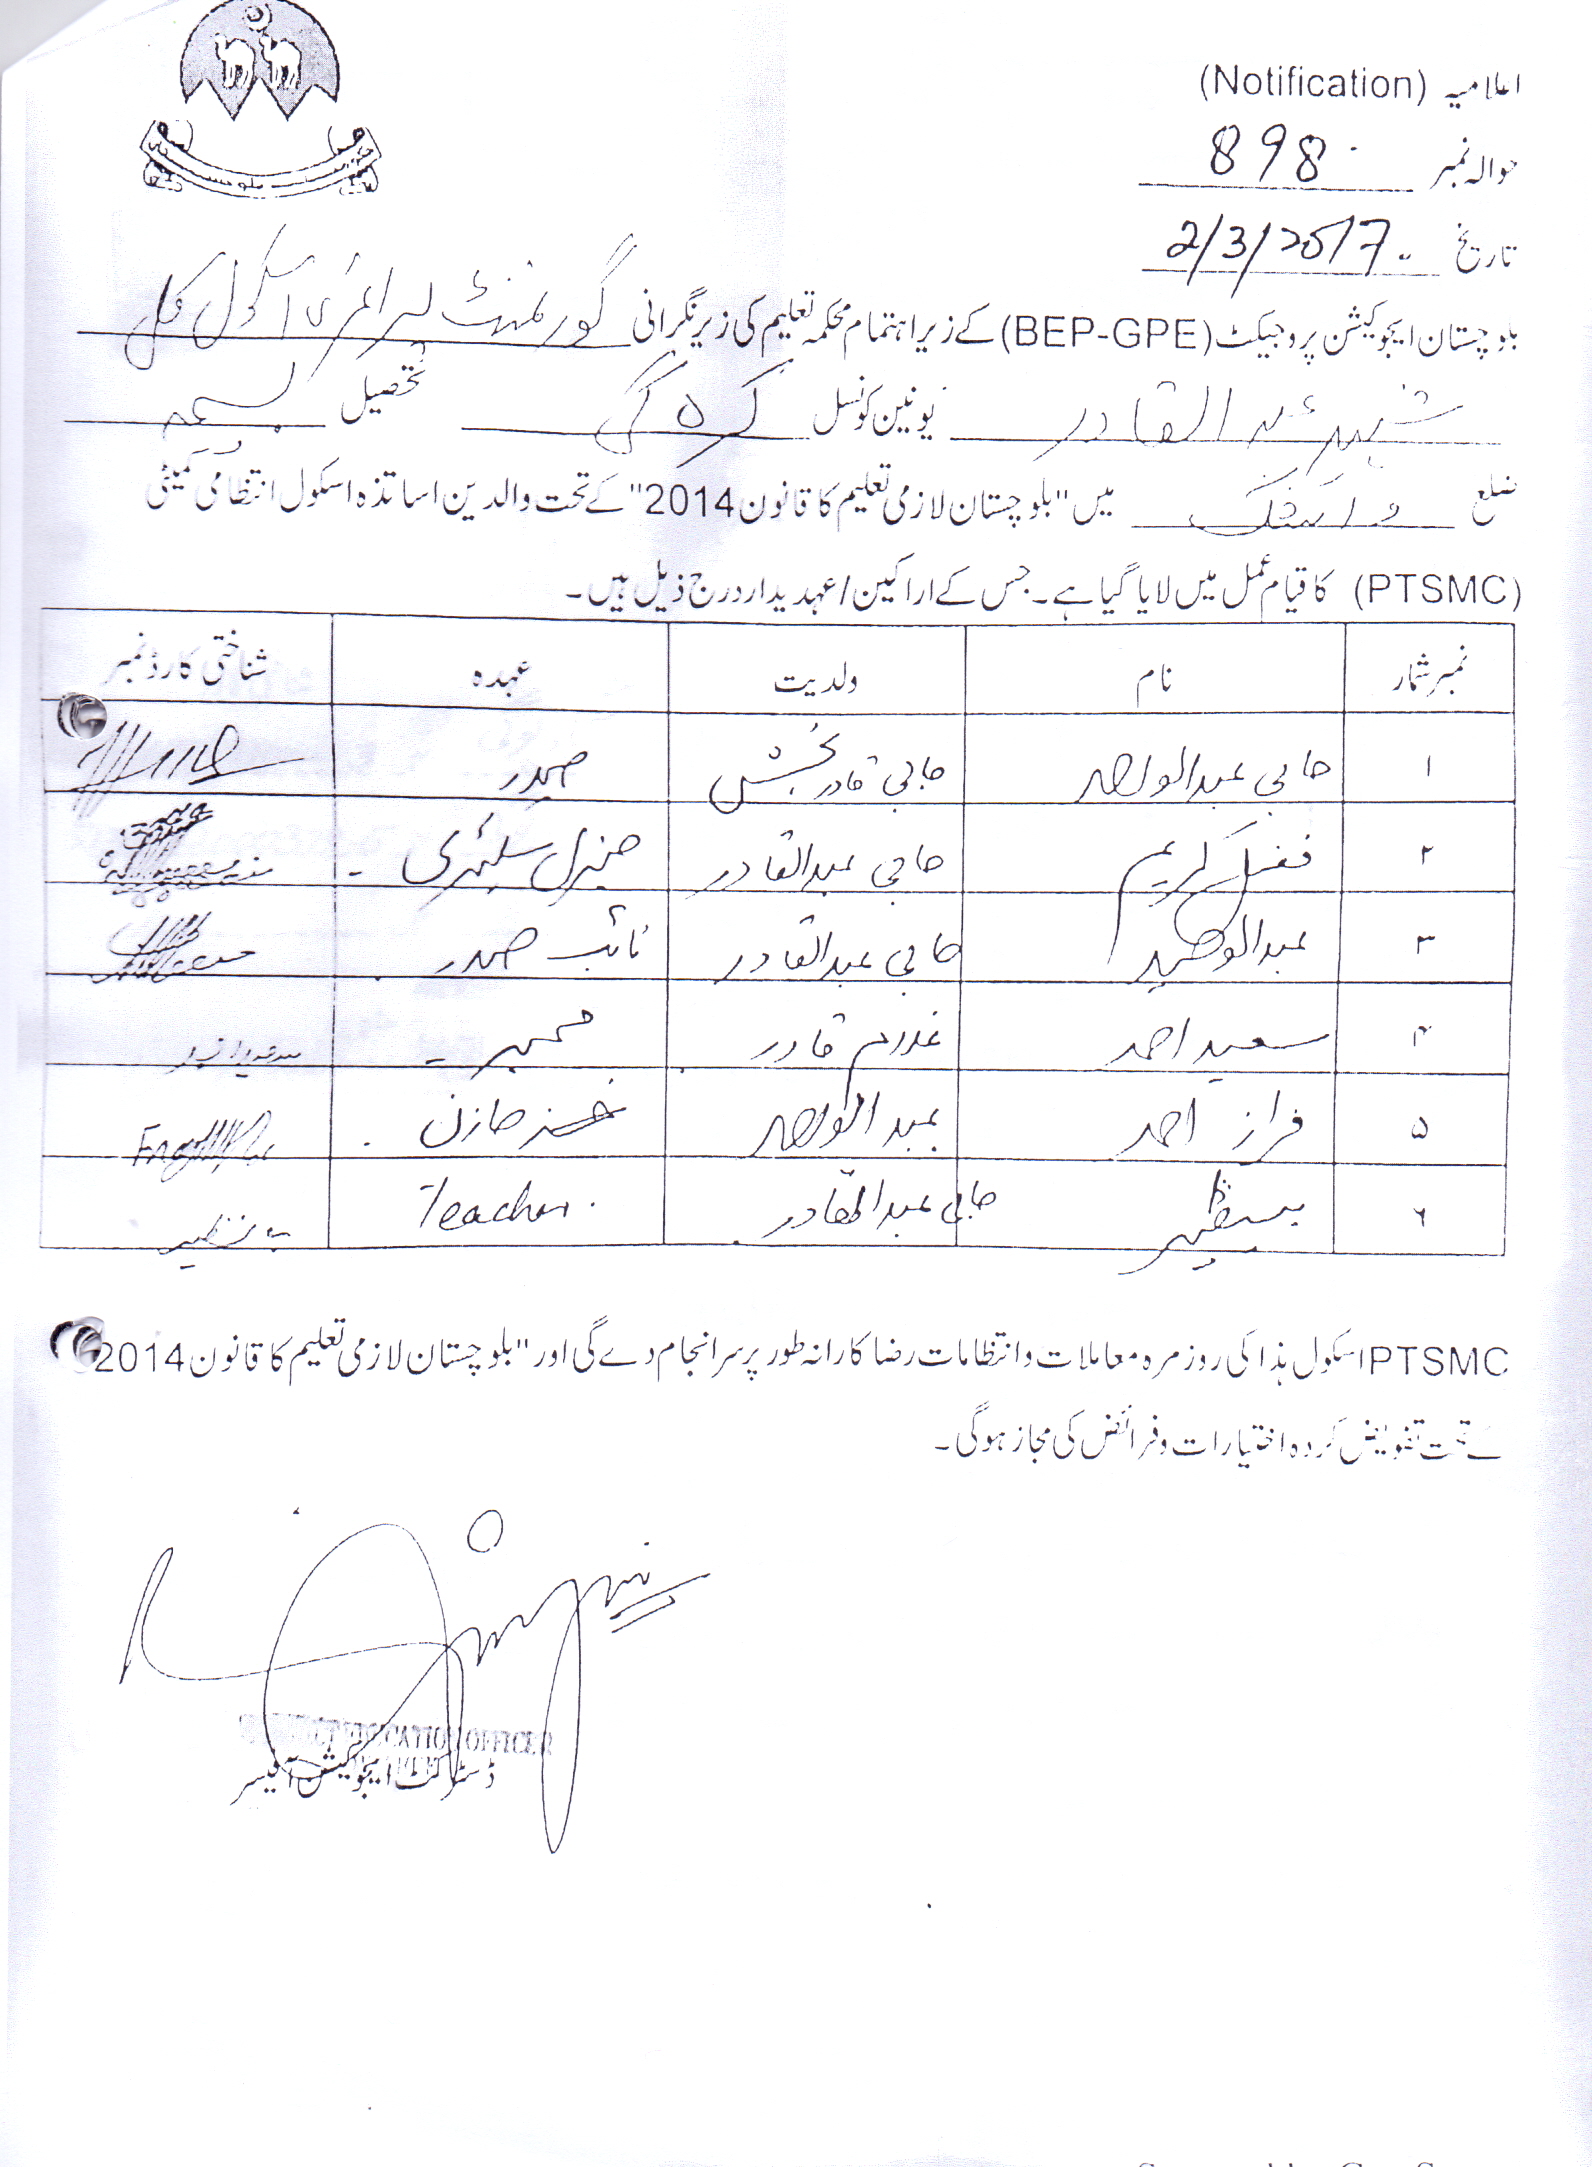 اعلامیہ (Notification)
حوالہ نمبر 898
تاریخ 2/3/2017
بلوچستان ایجوکیشن پروجیکٹ (BEP-GPE) کے زیر اہتمام محکمہ تعلیم کی زیر نگرانی گورنمنٹ پرائمری اسکول کلی
شہید عبدالقادر یونین کونسل تحصیل بسیمہ
ضلع واشک میں "بلوچستان لازمی تعلیم کا قانون 2014" کے تحت والدین اساتذہ اسکول انتظامی کمیٹی
(PTSMC) کا قیام عمل میں لایا گیا ہے۔ جس کے اراکین/عہدیدار درج ذیل ہیں۔
نمبر شمار نام ولدیت عہدہ شناختی کارڈ نمبر
۱ حاجی عبدالواحد حاجی قادر بخش صدر
۲ فضل کریم حاجی عبدالقادر جنرل سیکٹری
۳ عبدالوحید حاجی عبدالقادر نائب صدر
۴ سعید احمد غلام قادر ممبر
۵ فراز احمد عبدالواحد خازن
۶ بینظیر حاجی عبدالقادر Teacher. بے نظیر
PTSMC اسکول ہذا کی روزمرہ معاملات و انتظامات رضا کارانہ طور پر سرانجام دے گی اور "بلوچستان لازمی تعلیم کا قانون 2014
کے تحت تفویض کردہ اختیارات و فرائض کی مجاز ہوگی۔
EDUCATION OFFICER
ڈسٹرکٹ ایجوکیشن آفیسر